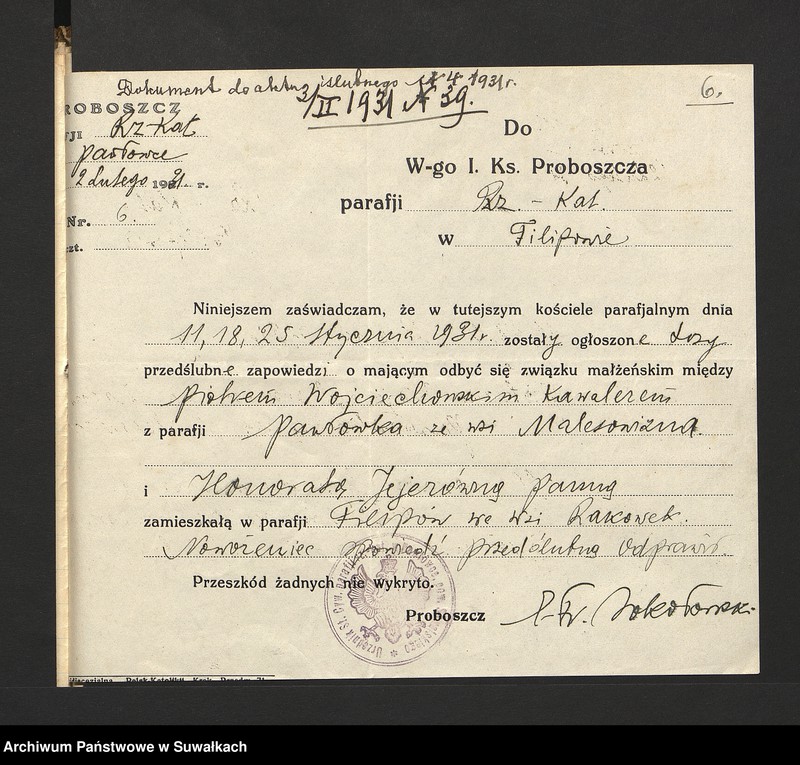 Dokument do aktu ślubnego № 4 1931 r.
3/II 1931 № 39.
6.
PROBOSZCZ
Rz-Kat.
2 Lutego 1931. r.
Nr. 6.
Do
W-go I. Ks. Proboszcza
parafji Rz. - Kat.
w Filipowie
Niniejszem zaświadczam, że w tutejszym kościele parafjalnym dnia
11, 18, 25 stycznia 1931r. zostały ogłoszone
przedślubne zapowiedzi o mającym odbyć się związku małżeńskim między
Piotrem Wojciechowskim Kawalerem
z parafji Pawłówka ze wsi Malesowizna
i Honoratą Jejerówną panną
zamieszkałą w parafji Filipów we wsi Rakówek.
Nowożeniec spowiedź przedślubną odprawił.
Przeszkód żadnych nie wykryto.
Proboszcz Sokołowski
Urzędnik St. Cyw. parafji
Archiwum Państwowe w Suwałkach